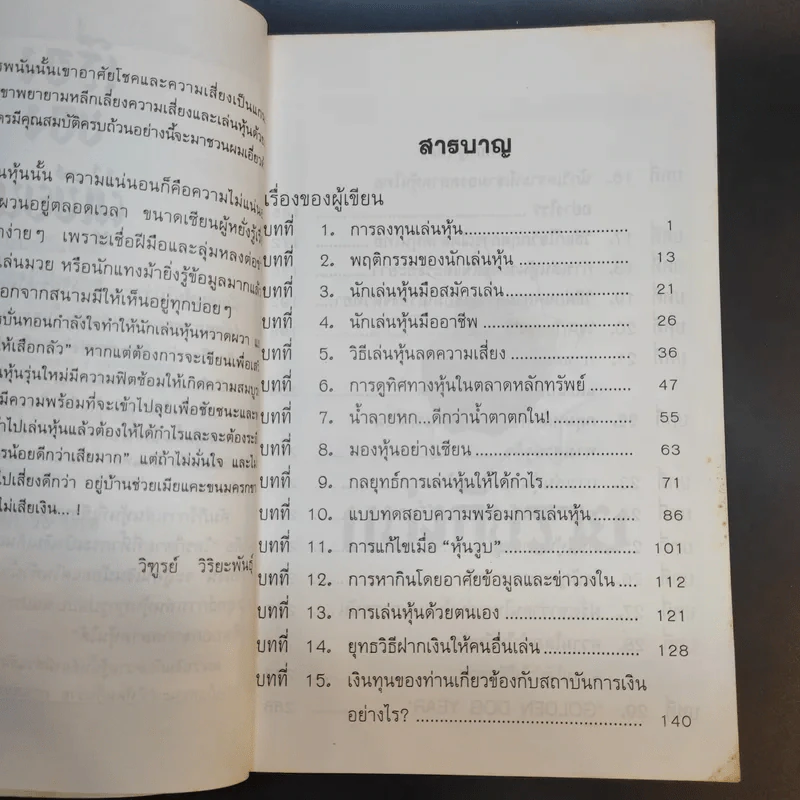 รพนันนั้นเขาอาศัยโชคและความเสี่ยงเป็นแกน
ขาพยายามหลีกเลี่ยงความเสี่ยงและเล่นหุ้นด้วย
ตรมีคุณสมบัติครบถ้วนอย่างนี้จะมาชวนผมเอี่ยว
นหุ้นนั้น ความแน่นอนก็คือความไม่แน่น
ผวนอยู่ตลอดเวลา ขนาดเซียนผู้หยั่งรู้
ง่ายๆ เพราะเชื่อฝีมือและลุ่มหลงต่อ
เล่นมวย หรือนักแทงม้ายิ่งรู้ข้อมูลมากแล้
ออกจากสนามมีให้เห็นอยู่ทุกบ่อยๆ
รบั่นทอนกำลังใจทำให้นักเล่นหุ้นหวาดผวา
ให้เสือกลัว” หากแต่ต้องการจะเขียนเพื่อ
หุ้นรุ่นใหม่มีความฟิตซ้อมให้เกิดความสมบู
มีความพร้อมที่จะเข้าไปลุยเพื่อชัยชนะและ
าไปเล่นหุ้นแล้วต้องให้ได้กำไรและจะต้อง
รน้อยดีกว่าเสียมาก” แต่ถ้าไม่มั่นใจ และ
ไปเสี่ยงดีกว่า อยู่บ้านช่วยเมียแคะขนมครก
ไม่เสียเงิน...!
วิฑูรย์ วิริยะพันธุ์
สารบาญ
เรื่องของผู้เขียน
บทที่ 1. การลงทุนเล่นหุ้น 1
บทที่ 2. พฤติกรรมของนักเล่นหุ้น 13
บทที่ 3. นักเล่นหุ้นมือสมัครเล่น 21
บทที่ 4. นักเล่นหุ้นมืออาชีพ 26
บทที่ 5. วิธีเล่นหุ้นลดความเสี่ยง 36
บทที่ 6. การดูทิศทางหุ้นในตลาดหลักทรัพย์ 47
บทที่ 7. น้ำลายหก...ดีกว่าน้ำตาตกใน! 55
บทที่ 8. มองหุ้นอย่างเซียน 63
บทที่ 9. กลยุทธ์การเล่นหุ้นให้ได้กำไร 71
บทที่ 10. แบบทดสอบความพร้อมการเล่นหุ้น 86
บทที่ 11. การแก้ไขเมื่อ “หุ้นวูบ” 101
บทที่ 12. การหากินโดยอาศัยข้อมูลและข่าววงใน 112
บทที่ 13. การเล่นหุ้นด้วยตนเอง 121
บทที่ 14. ยุทธวิธีฝากเงินให้คนอื่นเล่น 128
บทที่ 15. เงินทุนของท่านเกี่ยวข้องกับสถาบันการเงิน
อย่างไร? 140